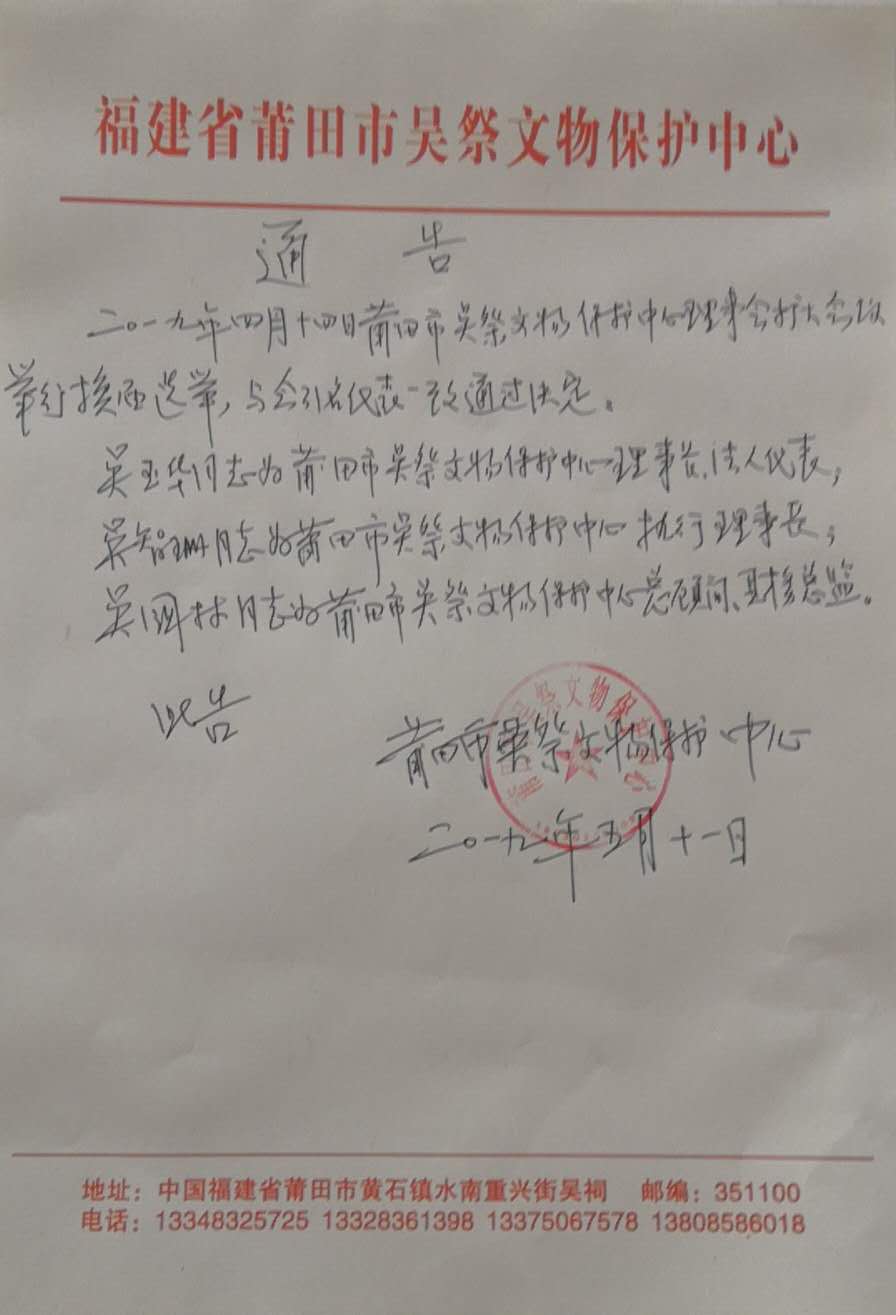 福建省莆田市吴祭文物保护中心
通 告
二〇一九年四月十四日莆田市吴祭文物保护中心理事会扩大会议
举行换届选举,与会代表一致通过决定。
吴玉华同志为莆田市吴祭文物保护中心理事长、法人代表;
吴智 同志为莆田市吴祭文物保护中心执行理事长;
吴国林同志为莆田市吴祭文物保护中心总顾问、财务总监。
此告
莆田市吴祭文物保护中心
二〇一九年五月十一日
地址:中国福建省莆田市黄石镇水南重兴街吴祠 邮编:351100
电话:13348325725 13328361398 13375067578 13808586018